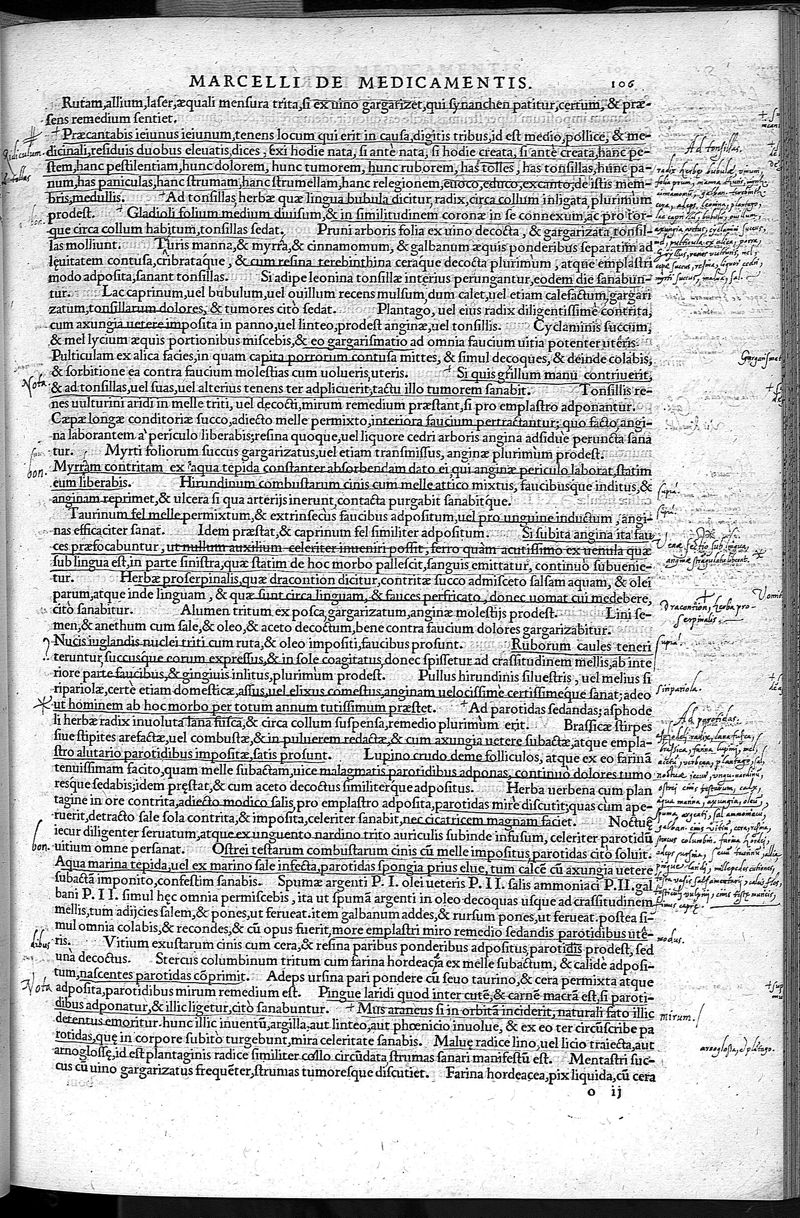 MARCELLI DE MEDICAMENTIS. 106
Rutam, allium, laser, æquali mensura trita, si ex uino gargarizet, qui synanchen patitur, certum, & præ-
sens remedium sentiet.
Præcantabis ieiunus ieiunum, tenens locum qui erit in causa, digitis tribus, id est medio, pollice, & me-
dicinali, residuis duobus eleuatis, dices, Exi hodie nata, si antè nata, si hodie creata, si antè creata, hanc pe-
stem, hanc pestilentiam, hunc dolorem, hunc tumorem, hunc ruborem, has tolles, has tonsillas, hunc pa-
num, has paniculas, hanc strumam, hanc strumellam, hanc relegionem, euoco, educo, excanto, de istis mem-
bris, medullis. Ad tonsillas, herbæ quæ lingua bubula dicitur, radix, circa collum inligata plurimum
prodest. Gladioli folium medium diuisum, & in similitudinem coronæ in se connexum, ac pro tor-
que circa collum habitum, tonsillas sedat. Pruni arboris folia ex uino decocta, & gargarizata, tonsil-
las molliunt. Turis manna, & myrra, & cinnamomum, & galbanum æquis ponderibus separatim ad
leuitatem contusa, cribrataque, & cum resina terebinthina ceraque decocta plurimum, atque emplastri
modo adposita, sanant tonsillas. Si adipe leonina tonsillæ interius perungantur, eodem die sanabun-
tur. Lac caprinum, uel bubulum, uel ouillum recens mulsum, dum calet, uel etiam calefactum, gargari
zatum, tonsillarum dolores, & tumores citò sedat. Plantago, uel eius radix diligentissime contrita,
cum axungia uetere imposita in panno, uel linteo, prodest anginæ, uel tonsillis. Cyclaminis succum,
& mel lycium æquis portionibus miscebis, & eo gargarismatio ad omnia faucium uitia potenter utéris.
Pulticulam ex alica facies, in quam capita porrorum contusa mittes, & simul decoques, & deinde colabis,
& sorbitione ea contra faucium molestias cum uolueris, uteris. Si quis grillum manu contriuerit,
& ad tonsillas, uel suas, uel alterius tenens ter adplicuerit, tactu illo tumorem sanabit. Tonsillis re-
nes uulturini aridi in melle triti, uel decocti, mirum remedium præstant, si pro emplastro adponantur.
Cæpæ longæ conditoriæ succo, adiecto melle permixto, interiora faucium pertractantur; quo facto, angi-
na laborantem à periculo liberabis; resina quoque, uel liquore cedri arboris angina adsidue peruncta sana
tur. Myrti foliorum succus gargarizatus, uel etiam transmissus, anginæ plurimum prodest.
Myrram contritam ex aqua tepida constanter absorbendam dato ei, qui anginæ periculo laborat, statim
eum liberabis. Hirundinum combustarum cinis cum melle attico mixtus, faucibusque inditus, &
anginam reprimet, & ulcera si qua arterijs inerunt, contacta purgabit sanabitque.
Taurinum fel melle permixtum, & extrinsecus faucibus adpositum, uel pro unguine inductum, angi-
nas efficaciter sanat. Idem præstat, & caprinum fel similiter adpositum. Si subita angina ita fau-
ces præfocabuntur, ut nullum auxilium celeriter inueniri possit, ferro quàm acutissimo ex uenula quæ
sub lingua est, in parte sinistra, quæ statim de hoc morbo pallescit, sanguis emittatur, continuò subuenie-
tur. Herbæ proserpinalis, quæ dracontion dicitur, contritæ succo admisceto salsam aquam, & olei
parum, atque inde linguam, & quæ sunt circa linguam, & fauces perfricato, donec uomat cui medebere,
citò sanabitur. Alumen tritum ex posca, gargarizatum, anginæ molestijs prodest. Lini se-
men, & anethum cum sale, & oleo, & aceto decoctum, bene contra faucium dolores gargarizabitur.
Nucis iuglandis nuclei triti cum ruta, & oleo impositi, faucibus prosunt. Ruborum caules teneri
teruntur, succusque eorum expressus, & in sole coagitatus, donec spissetur ad crassitudinem mellis, ab inte
riore parte faucibus, & gingiuis inlitus, plurimùm prodest. Pullus hirundinis siluestris, uel melius si
ripariolæ, certè etiam domesticæ, assus, uel elixus comestus, anginam uelocissime certissimeque sanat; adeo
ut hominem ab hoc morbo per totum annum tutissimum præstet. Ad parotidas sedandas; asphode
li herbæ radix inuoluta lana fusca, & circa collum suspensa, remedio plurimùm erit. Brassicæ stirpes
siue stipites arefactæ, uel combustæ, & in puluerem redactæ, & cum axungia uetere subactæ, atque empla-
stro alutario parotidibus impositæ, satis prosunt. Lupino crudo deme folliculos, atque ex eo farinã
tenuissimam facito, quam melle subactam, uice malagmatis parotidibus adponas, continuò dolores tumo
resque sedabis; idem præstat, & cum aceto decoctus similiterque adpositus. Herba uerbena cum plan
tagine in ore contrita, adiecto modico salis, pro emplastro adposita, parotidas mire discutit; quas cum ape-
ruerit, detracto sale sola contrita, & imposita, celeriter sanabit, nec cicatricem magnam faciet. Noctuæ
iecur diligenter seruatum, atque ex unguento nardino trito auriculis subinde infusum, celeriter parotidū
uitium omne persanat. Ostrei testarum combustarum cinis cū melle impositus parotidas citò soluit.
Aqua marina tepida, uel ex marino sale infecta, parotidas spongia prius elue, tum calcē cū axungia uetere
subactā imponito, confestim sanabis. Spumæ argenti P. I. olei ueteris P. II. salis ammoniaci P. II. gal
bani P. II. simul hęc omnia permiscebis, ita ut spumā argenti in oleo decoquas usque ad crassitudinem
mellis, tum adijcies salem, & pones, ut ferueat. item galbanum addes, & rursum pones, ut ferueat. postea si-
mul omnia colabis, & recondes, & cū opus fuerit, more emplastri miro remedio sedandis parotidibus uté-
ris. Vitium exustarum cinis cum cera, & resina paribus ponderibus adpositus, parotidis prodest, sed
unà decoctus. Stercus columbinum tritum cum farina hordeacja ex melle subactum, & calidè adposi-
tum, nascentes parotidas cōprimit. Adeps ursina pari pondere cū seuo taurino, & cera permixta atque
adposita, parotidibus mirum remedium est. Pingue laridi quod inter cutē, & carnē macrā est, si paroti-
dibus adponatur, & illic ligetur, citò sanabuntur. Mus araneus si in orbitā inciderit, naturali fato illic
detentus emoritur. hunc illic inuentū, argilla, aut linteo, aut phœnicio inuolue, & ex eo ter circūscribe pa
rotidas, quę in corpore subitò turgebunt, mira celeritate sanabis. Maluę radice lino, uel licio traiecta, aut
arnoglossę, id est plantaginis radice similiter collo circūdata, strumas sanari manifestū est. Mentastri suc-
cus cū uino gargarizatus frequēter, strumas tumoresque discutiet. Farina hordeacea, pix liquida, cū cera
o ij
Ridiculum
Nota
bon.
bon.
Nota
Ad tonsillas.
Dracontion, herba pro-
serpinalis.
siripariola.
Ad parotidas.
modus.
mirum.
arnoglossa, i. plãtago.